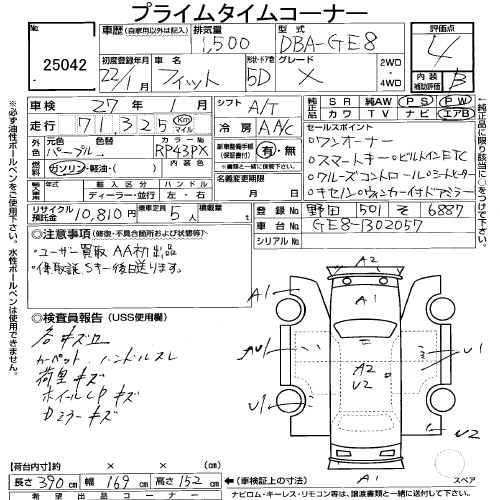 プライムタイムコーナー
No. 25042
車歴 (自家用以外は記入)
排気量 1,500
型式 DBA-GE8
評価点 4
初度登録年月 22/1
車名 フィット
形状・ドア数 5D
グレード X
2WD
4WD
内装補助評価 B
車検 27年 1月
シフト A/T
純正品 SR 純AW PS PW
カワ TV ナビ エアB
走行 71,325 Km マイル
冷房 AAC
セールスポイント
・ワンオーナー
・スマートキー・ビルトインETC
・クルーズコントロール・シートヒーター
・キセノン・ウィンカー付ドアミラー
外色 元色 パープル
色替
カラーNo. RP43PX
内装色
新車整備手帳(保証書付) 有・無
※書類と一緒に送付して下さい。
燃料 ガソリン・軽油・( )
名義変更期限 月 日
輸入車 年式 輸入区分 ハンドル
年 ディーラー・並行 左・右
リサイクル預託金 10,810円
乗車定員 5人
積載量 t
登録No. 野田 501 そ 6887
車台No. GE8-1302057
シリアルNo.
◎注意事項(修復・不具合箇所および状態等)
・ユーザー買取 AA初出品
・保取説Sキー後日送ります。
◎検査員報告(USS使用欄)
各キズ凹
カーペット、ハンドルスレ
荷室キズ
ホイールCPキズ
Dミラーキズ
A2
A1
A1
AU1
U1
A2
U2
U1
U2
A1
スペア
【荷台内寸】約 × × (cm)
長さ 390cm 幅 169cm 高さ 152cm
←(車検証上の寸法)
希望出品コーナー
ナビロム・キーレス・リモコン等は、譲渡書類と一緒に送付して下さい。
※必ず油性ボールペンをご使用下さい。水性ボールペンは使用できません。
←純正品に限り該当に○をつけて下さい。